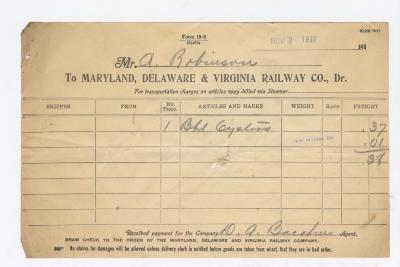 Form 19-S
NOV 2 - 1917
191
Mr. A. Robinson
To MARYLAND, DELAWARE & VIRGINIA RAILWAY CO., Dr.
For transportation charges on articles way-billed via Steamer
SHIPPER FROM No. Pkgs. ARTICLES AND MARKS WEIGHT RATE FREIGHT
1 Bbl Oysters .37
WAR REVENUE TAX .01
.38
Received payment for the Company, D. A. Agent.
DRAW CHECK TO THE ORDER OF THE MARYLAND, DELAWARE AND VIRGINIA RAILWAY COMPANY.
No claims for damages will be allowed unless delivery clerk is notified before goods are taken from wharf, that they are in bad order.